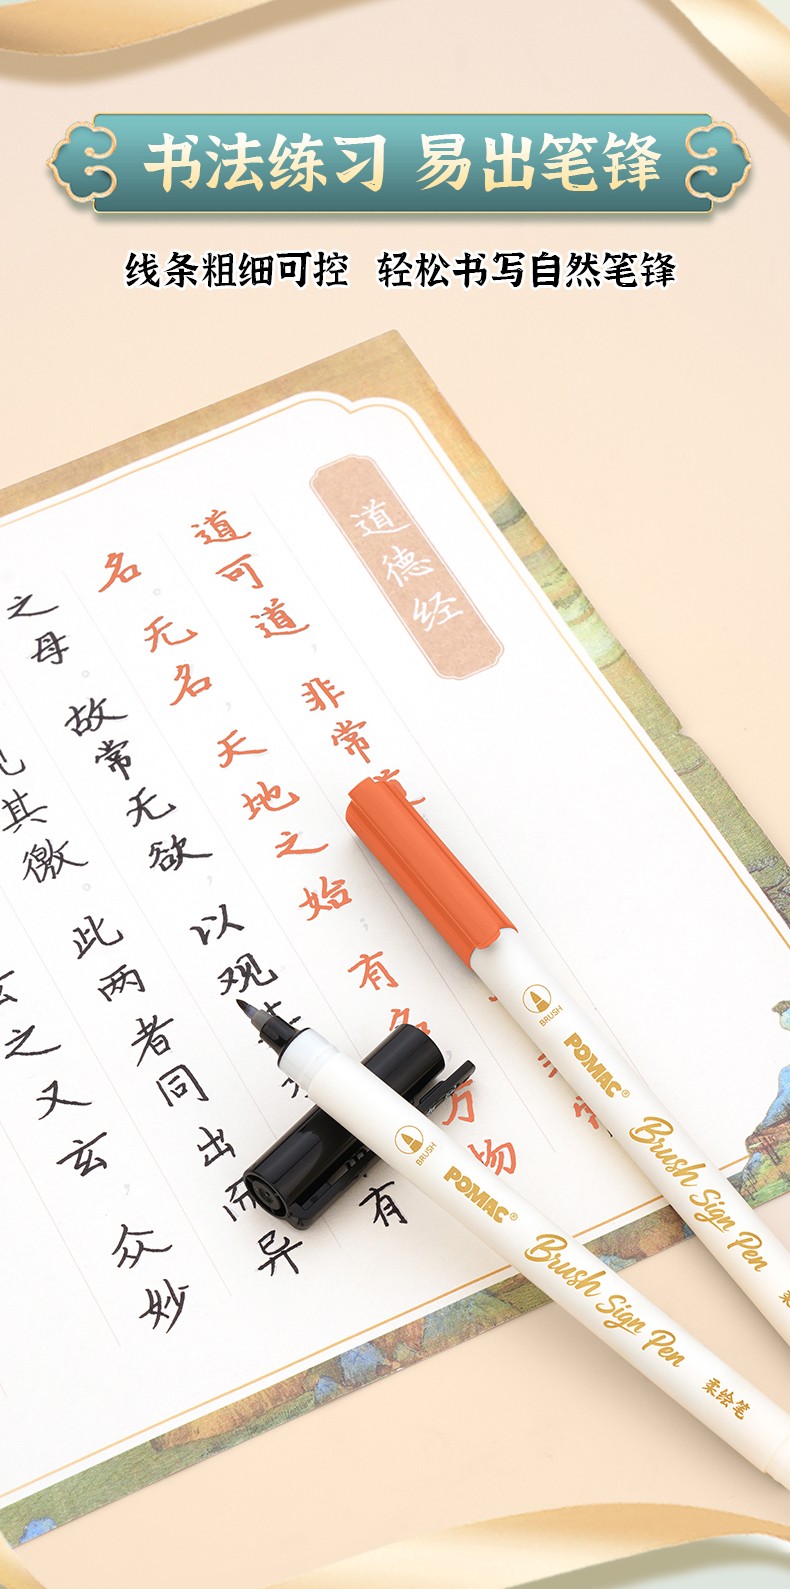 书法练习 易出笔锋
线条粗细可控 轻松书写自然笔锋
道德经
道可道，非常道
名，无名，天地之始；有名 万物
之母。故常无欲，以观其 有
其徼。此两者同出而异
玄之又玄，众妙
BRUSH
POMAC®
Brush Sign Pen
柔
BRUSH
POMAC®
Brush Sign Pen
柔绘笔